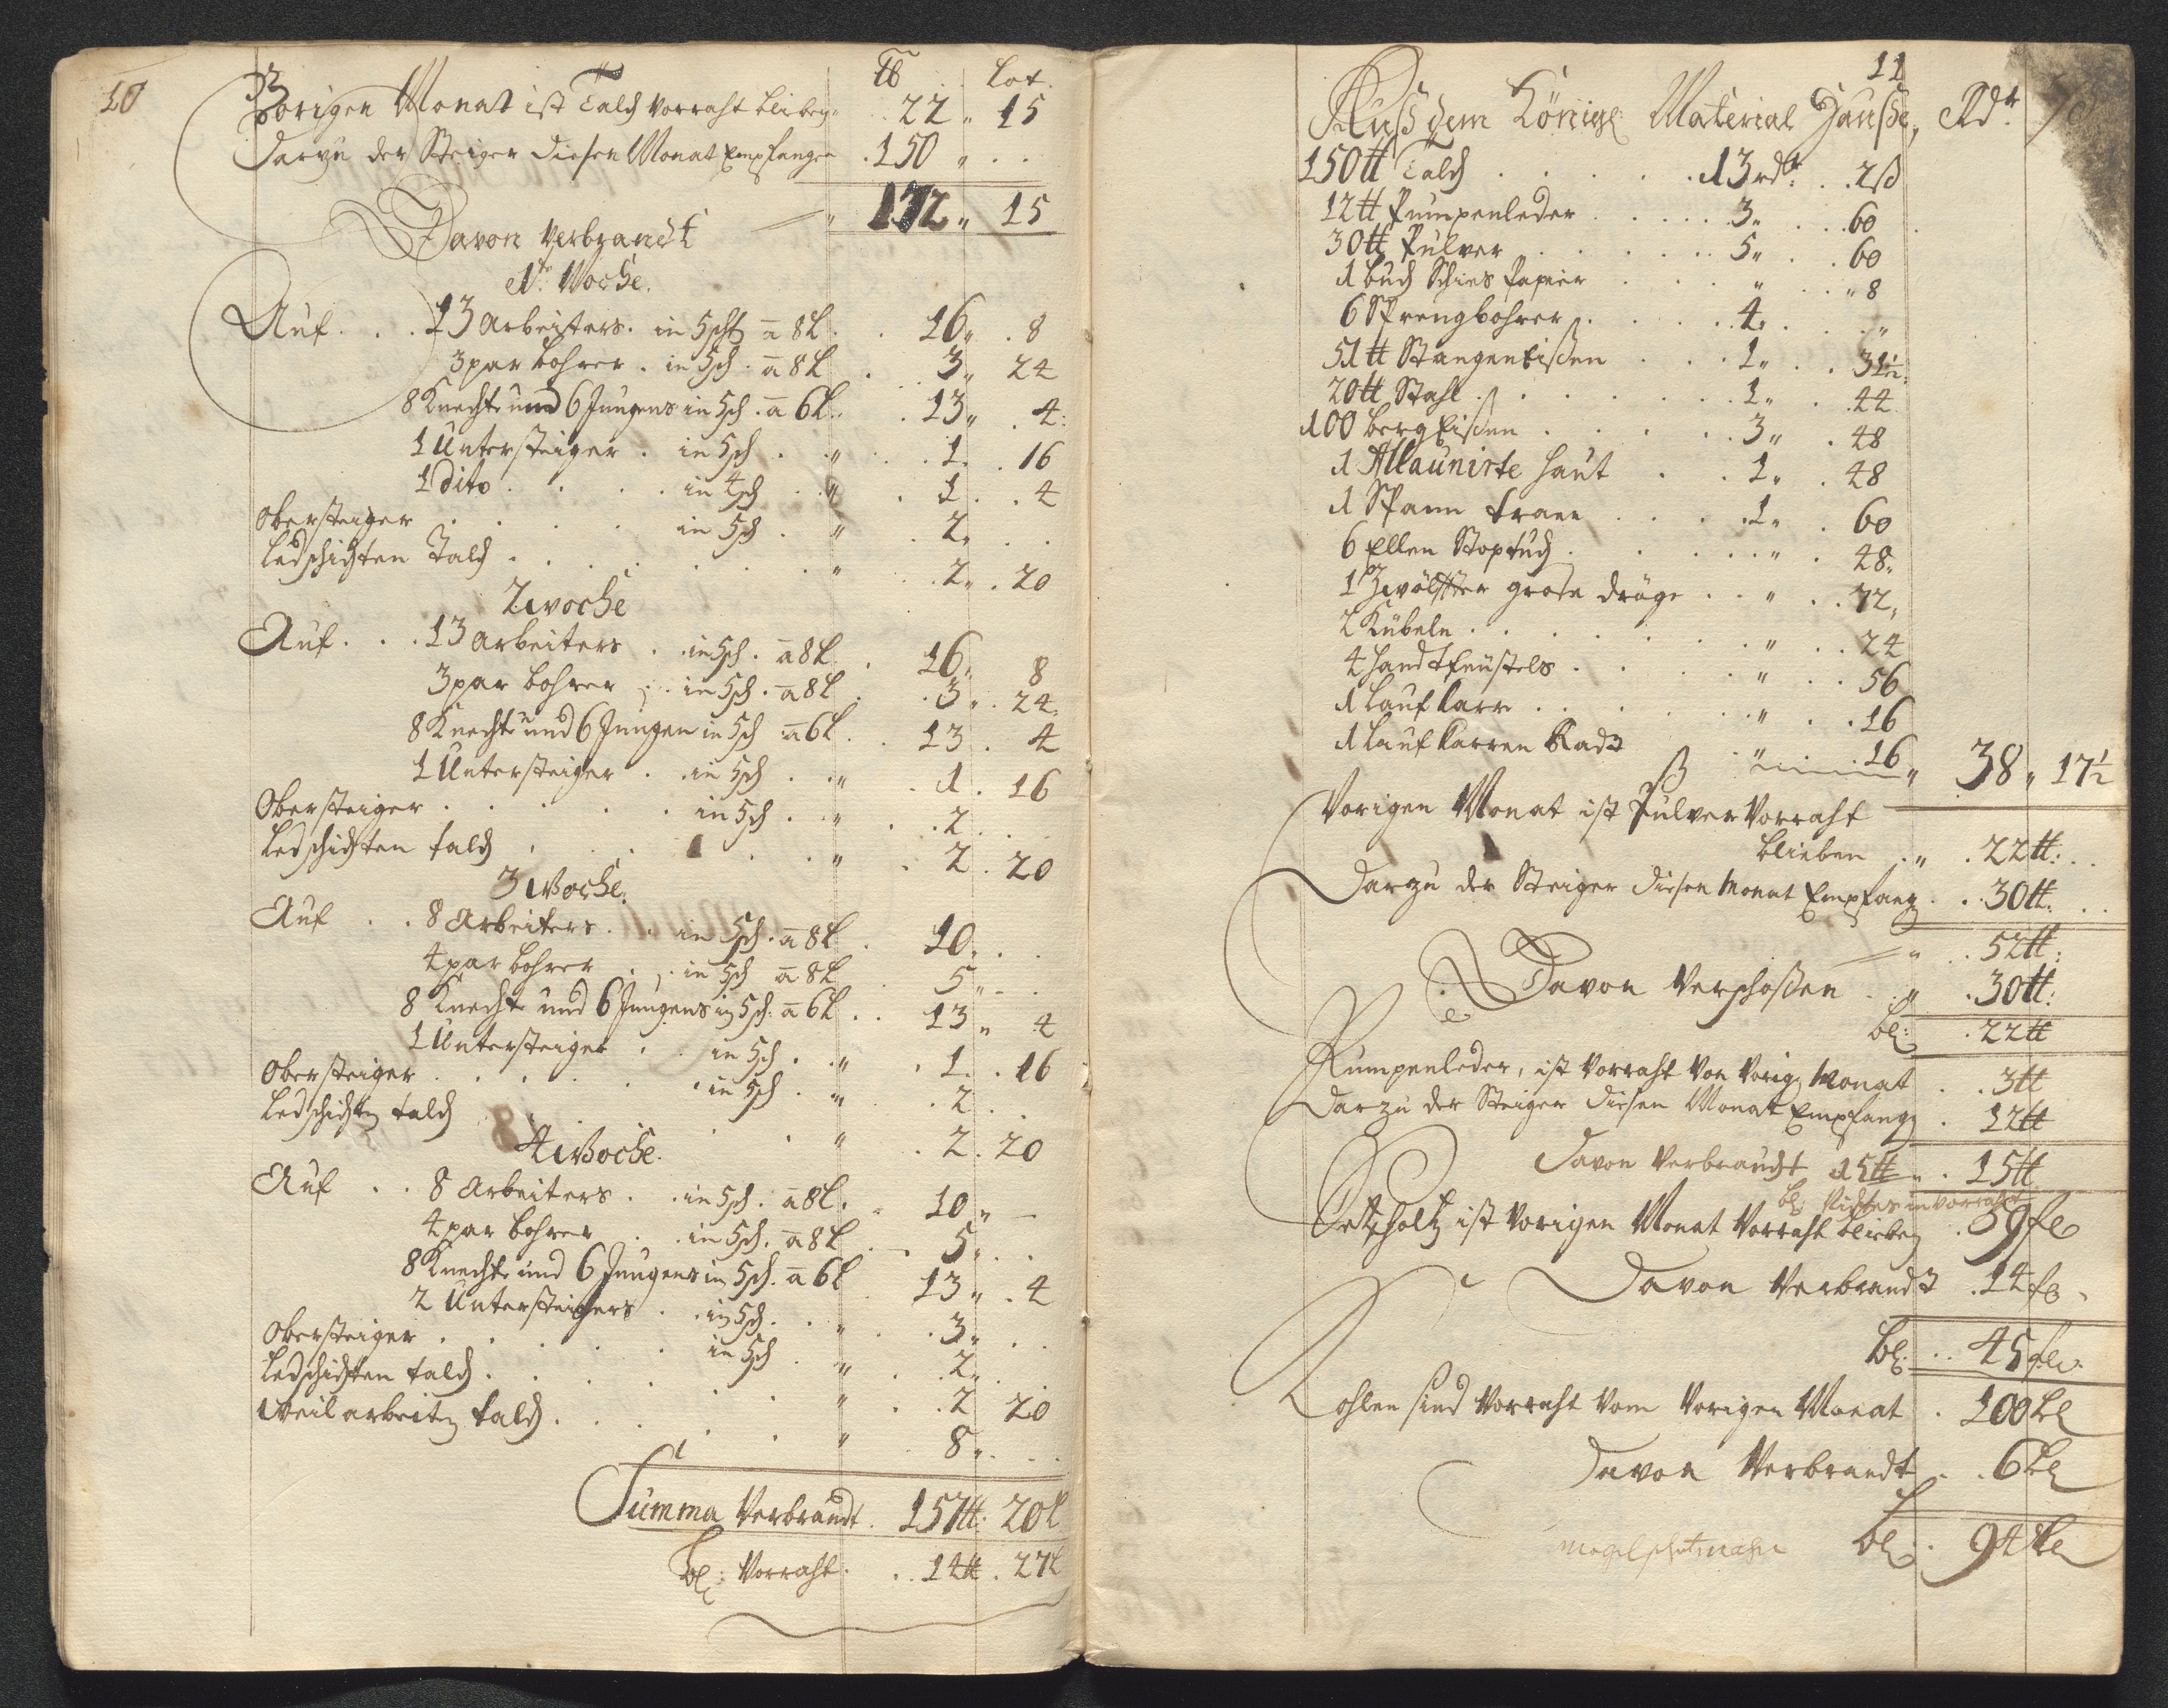 10
℔ Lot
Vorigen Monat ist Talch Vorraht blieben 22 „ 15
Darzu der Steiger diesen Monat Empfangen 150 „
„ 172 „ 15
Davon Verbrandt
1te Woche.
Auf 13 Arbeiters in 5 scht ā 8 L 16 „ 8
3 par bohrer in 5 sch ā 8 L 3 „ 24
8 Knechte und 6 Jungens in 5 sch ā 6 L 13 „ 4
1 Untersteiger in 5 sch „ 1 16
1 dito in 4 sch „ 1 4
Obersteiger in 5 sch „ 2 „
Ledschichten Talch „ 2 „ 20
2 woche
Auf 13 arbeiters in 5 sch ā 8 L 16 „ 8
3 par bohrer in 5 sch ā 8 L 3 „ 24
8 Knechte und 6 Jungen in 5 sch ā 6 L 13 4
1 Untersteiger in 5 sch „ 1 16
Obersteiger in 5 sch „ 2
Ledschichten talch „ 2 20
3 Woche.
Auf 8 Arbeiters in 5 sch ā 8 L 10
4 par bohrer in 5 sch ā 8 L 5 „
8 Knecht und 6 Jungens in 5 sch ā 6 L 13 „ 4
1 Untersteiger in 5 sch „ 1 16
Obersteiger in 5 sch „ 2
Ledschichten talch „ 2 20
4 Woche.
Auf 8 Arbeiters in 5 sch ā 8 L 10 „
4 par bohrer in 5 sch ā 8 L 5 „
8 Knechte und 6 Jungens in 5 sch ā 6 L 13 „ 4
2 Untersteigers in 5 sch „ 3 „
Obersteiger in 5 sch „ 2 „
Ledschichten talch „ 2 20
weil arbeiten talch „ 8 „
Summa Verbrandt 157 ℔ 20 L
bl: Vorraht 14 ℔ 27 L
11
Auß dem Königl Material Hauße, Rdr
150 ℔ Talch 13 rdr 2 ß
12 ℔ Pumpenleder 3 „ 60
30 ℔ Pulver 5 „ 60
1 buch Schies Papier „ „ 8
6 Sprengbohrer 4 „ „
51 ℔ Stangen Eißen 1 „ 31½
20 ℔ Stahl 1 „ 44
100 berg Eißen 3 „ 48
1 Allaunirte Haut 1 „ 48
1 Spann traan 1 „ 60
6 Ellen Stoptuch „ 48
1 Zwölffter große dräge „ 72
2 Kübeln „ 24
4 Handtfeustels „ 56
1 Lauf karr „ 16
1 Lauf karren Radt „ 16 „ 38 „ 17½
Vorigen Monat ist Pulver Vorraht
blieben „ 22 ℔
Darzu der Steiger diesen Monat Empfang 30 ℔
„ 52 ℔
Davon Verschoßen „ 30 ℔
bl: 22 ℔
Pumpenleder, ist Vorraht Von Vorig Monat 3 ℔
Darzu der Steiger diesen Monat Empfang 12 ℔
Davon Verbraucht 15 ℔ „ 15 ℔
bl: Nichtes in Vorraht
Setzholtz ist Vorigen Monat Vorraht blieben 59 fl
Davon Verbrandt 14 fl
bl: 45 fl
Kohlen sind Vorraht Vom Vorigen Monat 100 tl
Davon Verbrandt 6 tl
bl 94 tl